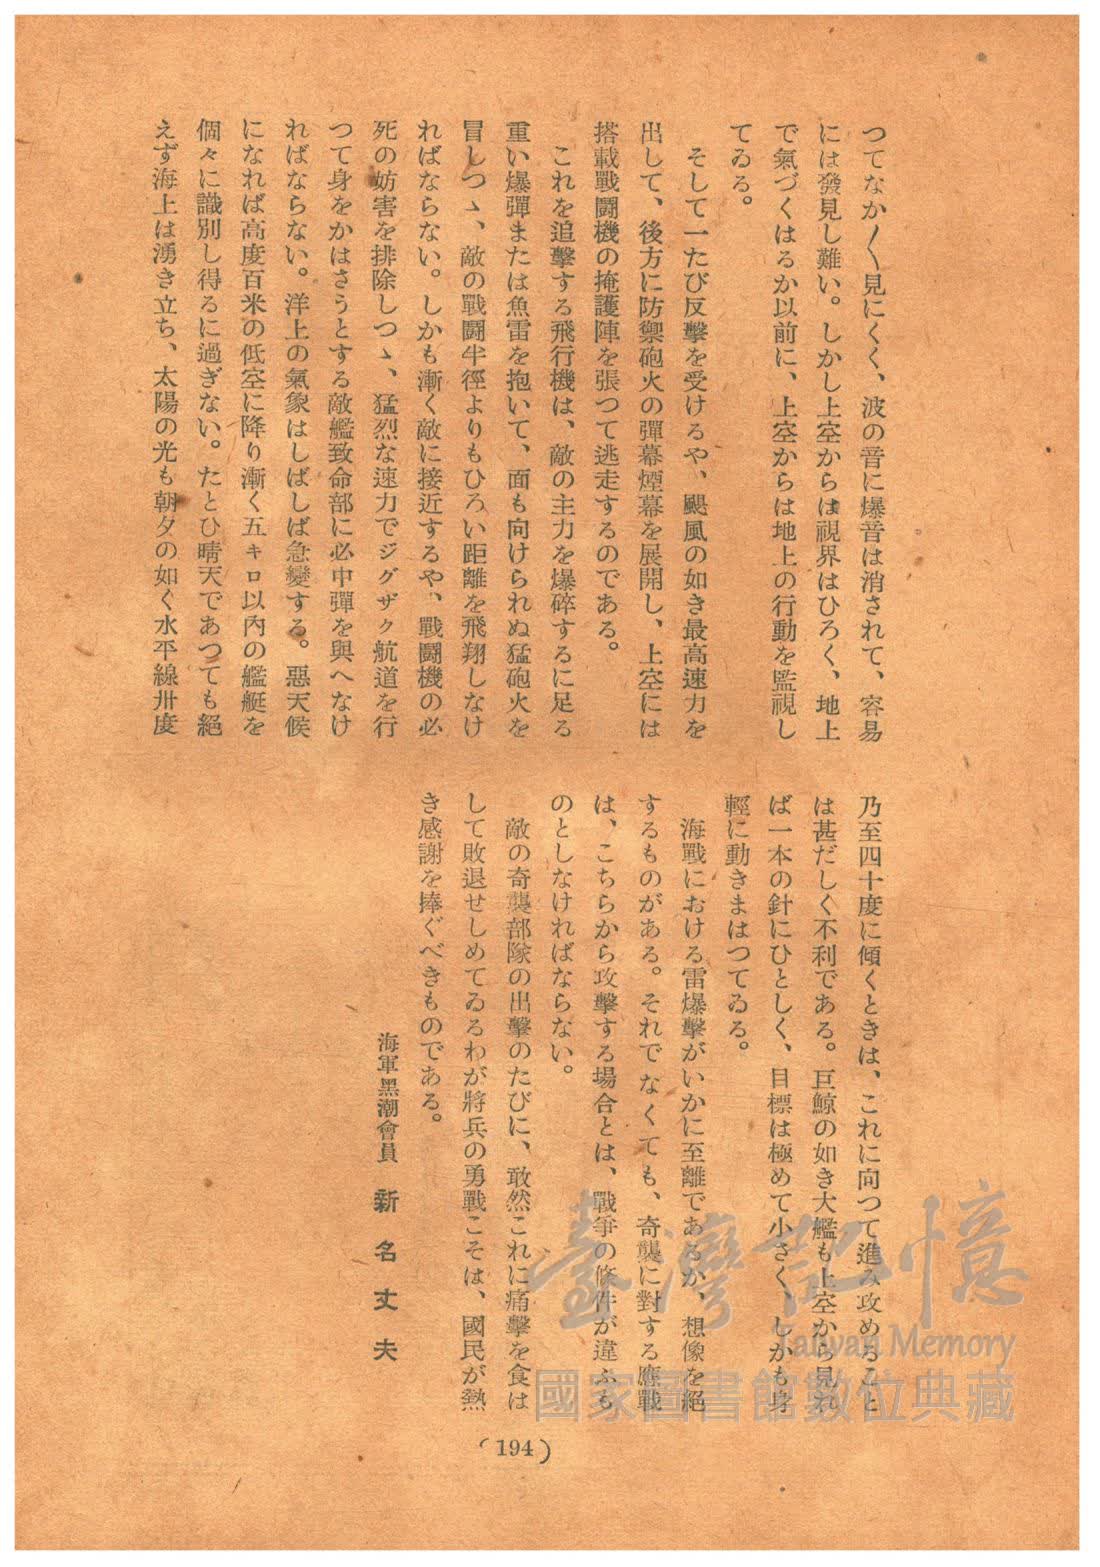 つてなか〳〵見にくく、波の音に爆音は消されて、容易
には發見し難い。しかし上空からは視界はひろく、地上
で氣づくはるか以前に、上空からは地上の行動を監視し
てゐる。
そして一たび反擊を受けるや、颶風の如き最高速力を
出して、後方に防禦砲火の彈幕煙幕を展開し、上空には
搭載戰鬪機の掩護陣を張つて逃走するのである。
これを追擊する飛行機は、敵の主力を爆碎するに足る
重い爆彈または魚雷を抱いて、面も向けられぬ猛砲火を
冒しつゝ、敵の戰鬪半徑よりもひろい距離を飛翔しなけ
ればならない。しかも漸く敵に接近するや、戰鬪機の必
死の妨害を排除しつゝ、猛烈な速力でジグザク航道を行
つて身をかはさうとする敵艦致命部に必中彈を與へなけ
ればならない。洋上の氣象はしばしば急變する。惡天候
になれば高度百米の低空に降り漸く五キロ以內の艦艇を
個々に識別し得るに過ぎない。たとひ晴天であつても絕
えず海上は湧き立ち、太陽の光も朝夕の如く水平線卅度
乃至四十度に傾くときは、これに向つて進み攻めること
は甚だしく不利である。巨鯨の如き大艦も上空から見れ
ば一本の針にひとしく、目標は極めて小さく、しかも身
輕に動きまはつてゐる。
海戰における雷爆擊がいかに至難であるか、想像を絕
するものがある。それでなくても、奇襲に對する應戰
は、こちらから攻擊する場合とは、戰爭の條件が違ふも
のとしなければならない。
敵の奇襲部隊の出擊のたびに、敢然これに痛擊を食は
して敗退せしめてゐるわが將兵の勇戰こそは、國民が熱
き感謝を捧ぐべきものである。
海軍黑潮會員 新名丈夫
(194)
臺灣記憶
Taiwan Memory
國家圖書館數位典藏